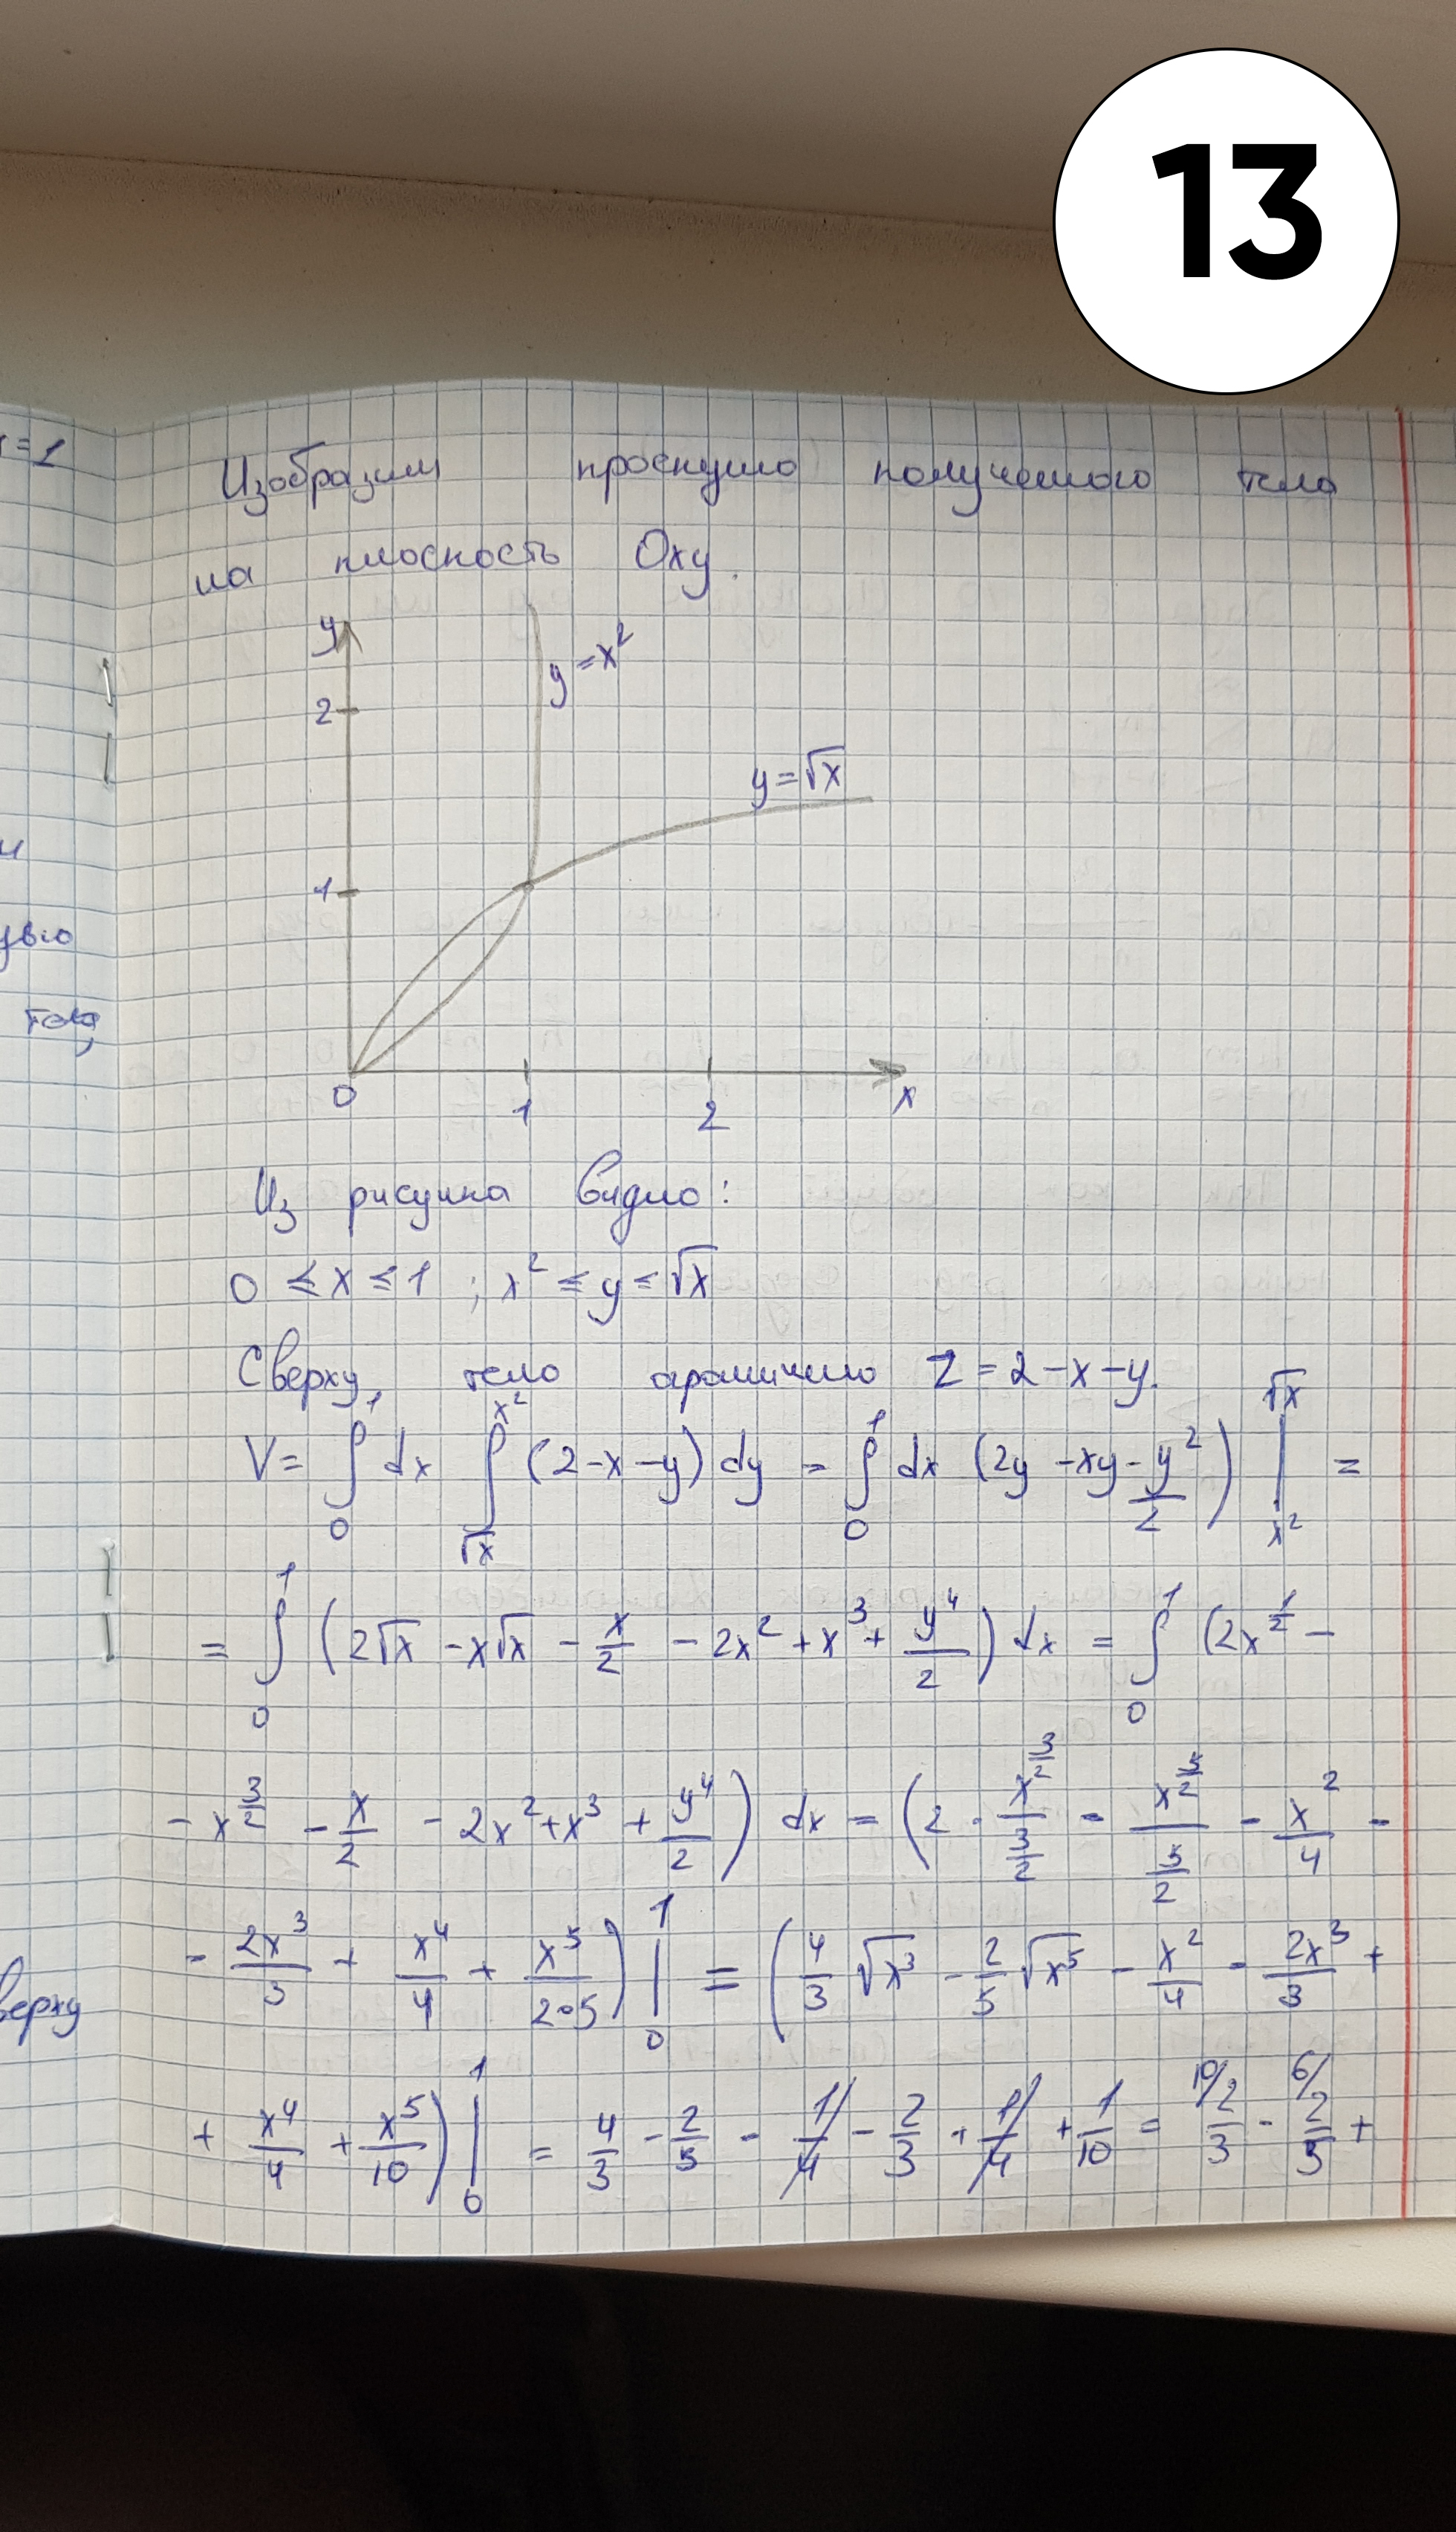 13
x=1
Изобразим проекцию полученного тела
на плоскость Oxy.
y
y=x²
2
y=√x
1
0
1
2
x
Из рисунка видно:
0 ≤ x ≤ 1 ; x² ≤ y ≤ √x
Сверху, тело ограничено Z = 2-x-y.
V = ∫₀¹ dx ∫_{√x}^{x²} (2-x-y) dy = ∫₀¹ dx (2y - xy - y²/2) |_{x²}^{√x} =
= ∫₀¹ (2√x - x√x - x/2 - 2x² + x³ + y⁴/2) dx = ∫₀¹ (2x^{1/2} -
- x^{3/2} - x/2 - 2x² + x³ + y⁴/2) dx = (2 · x^{3/2}/(3/2) - x^{5/2}/(5/2) - x²/4 -
- 2x³/3 + x⁴/4 + x⁵/(2·5)) |₀¹ = (4/3 √x³ - 2/5 √x⁵ - x²/4 - 2x³/3 +
+ x⁴/4 + x⁵/10) |₀¹ = 4/3 - 2/5 - 1/4 - 2/3 + 1/4 + 1/10 = ¹⁰⁄ 2/3 - ⁶⁄ 2/5 +
тела,
верху